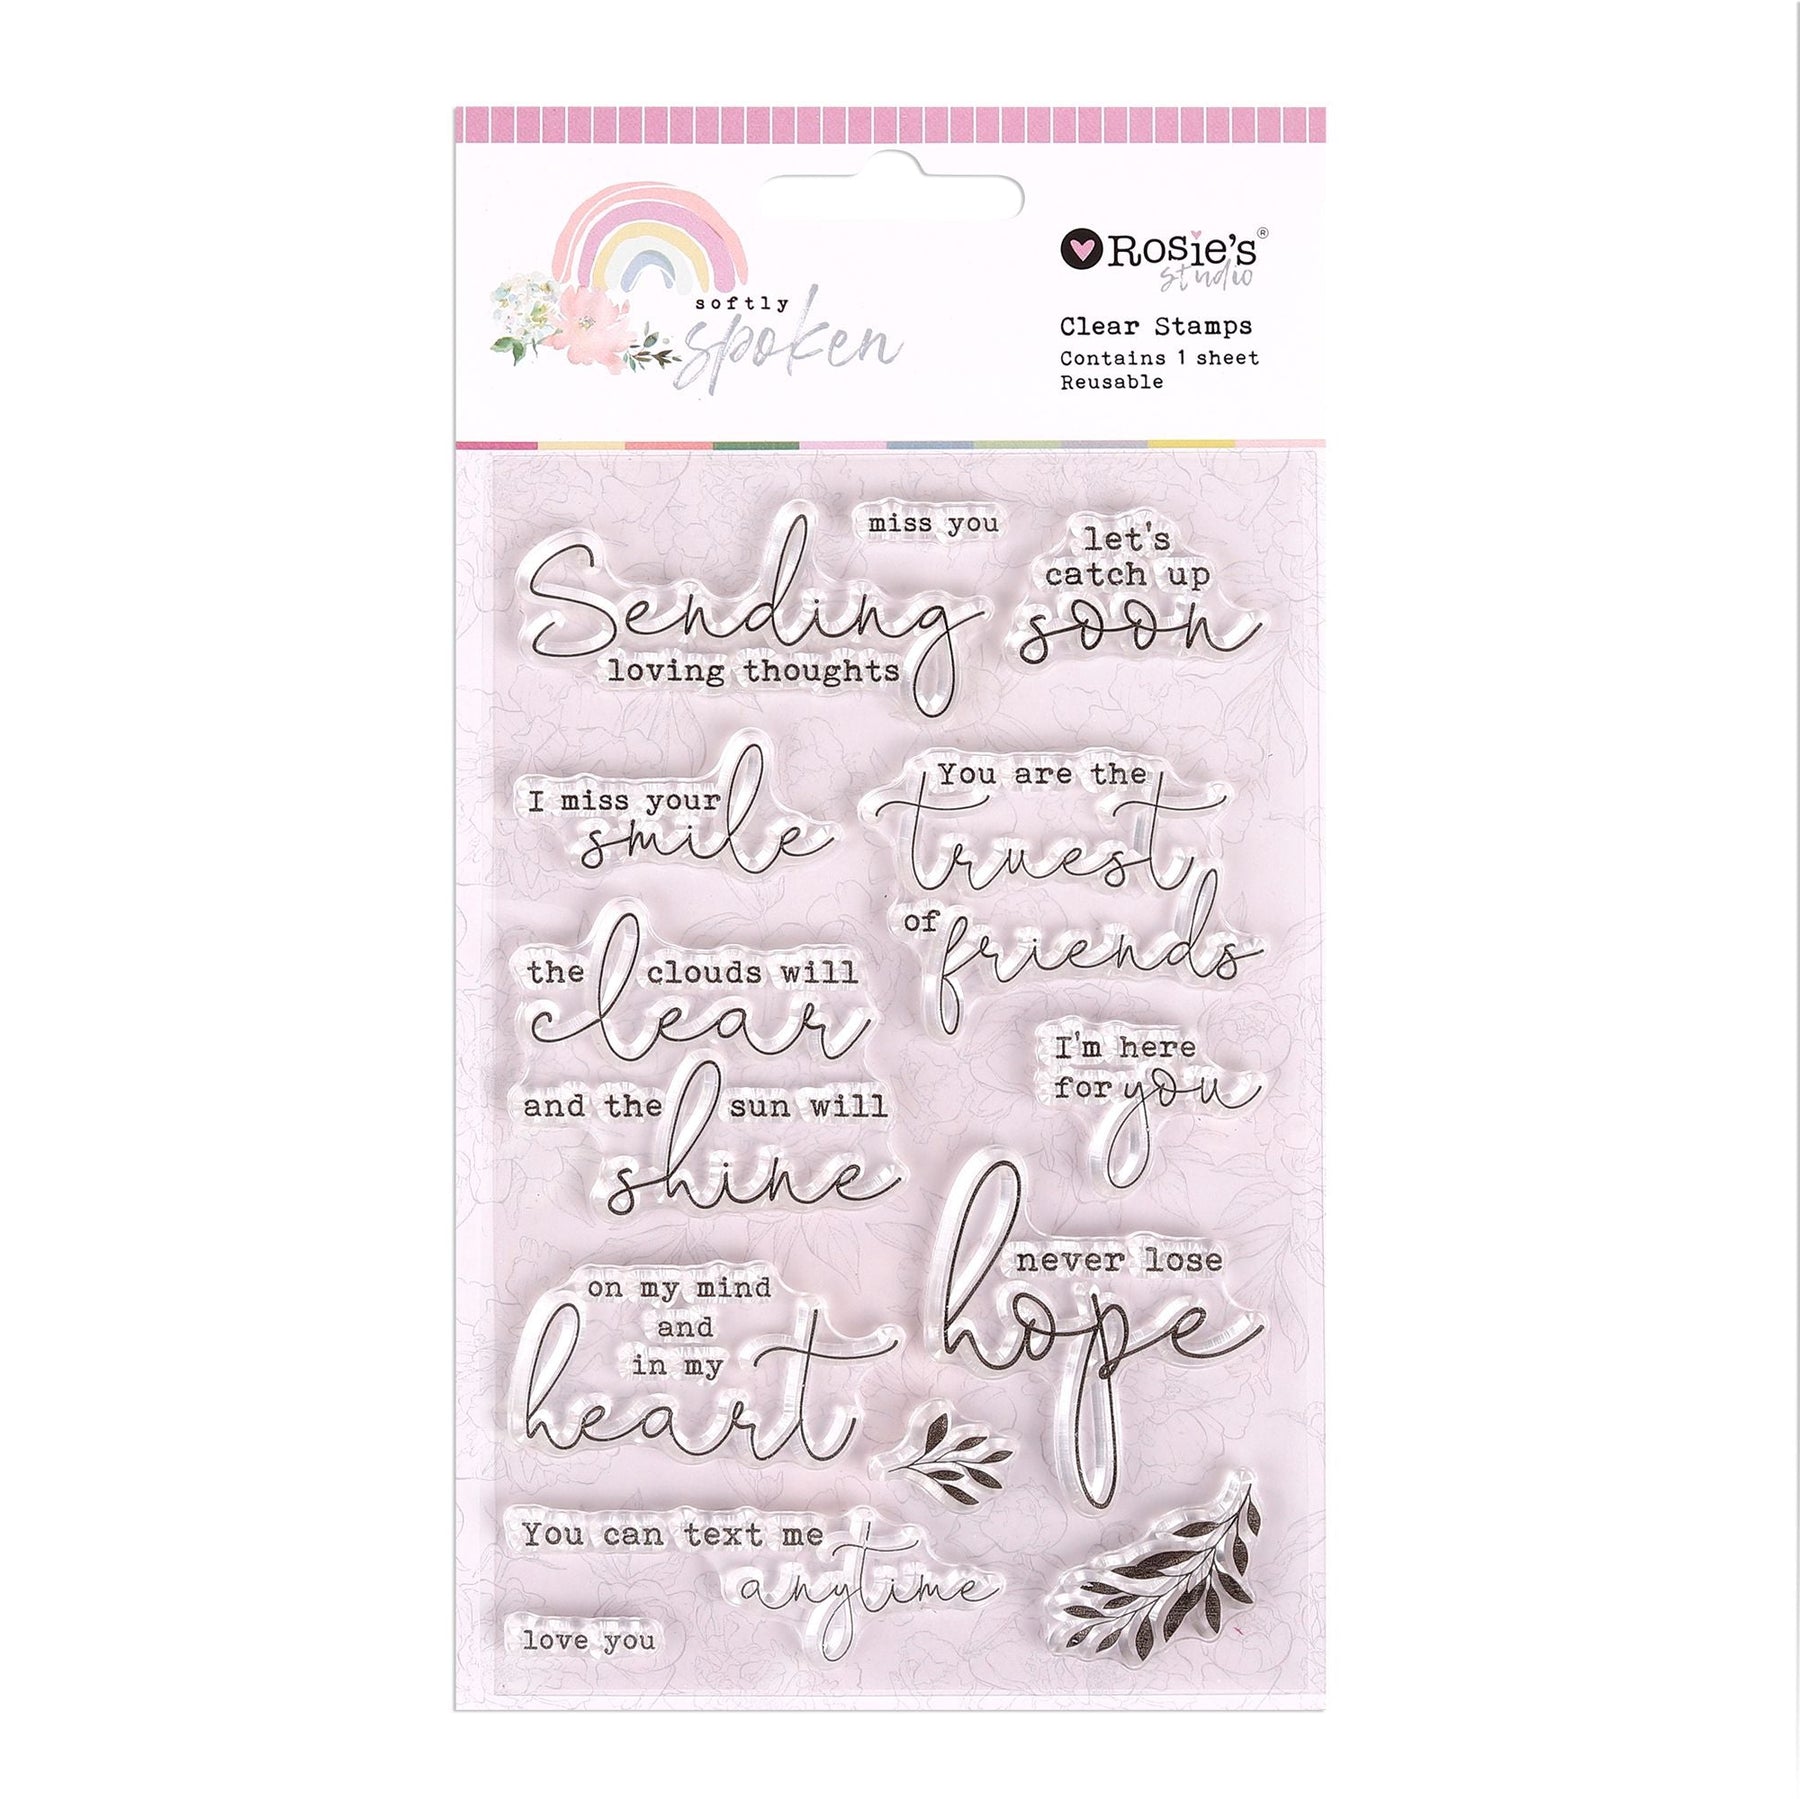 softly
spoken
Rosie's®
studio
Clear Stamps
Contains 1 sheet
Reusable
Sending
loving thoughts
miss you
let's
catch up
soon
I miss your
smile
You are the
truest
of friends
the clouds will
clear
and the sun will
shine
I'm here
for you
never lose
hope
on my mind
and
in my
heart
You can text me
anytime
love you